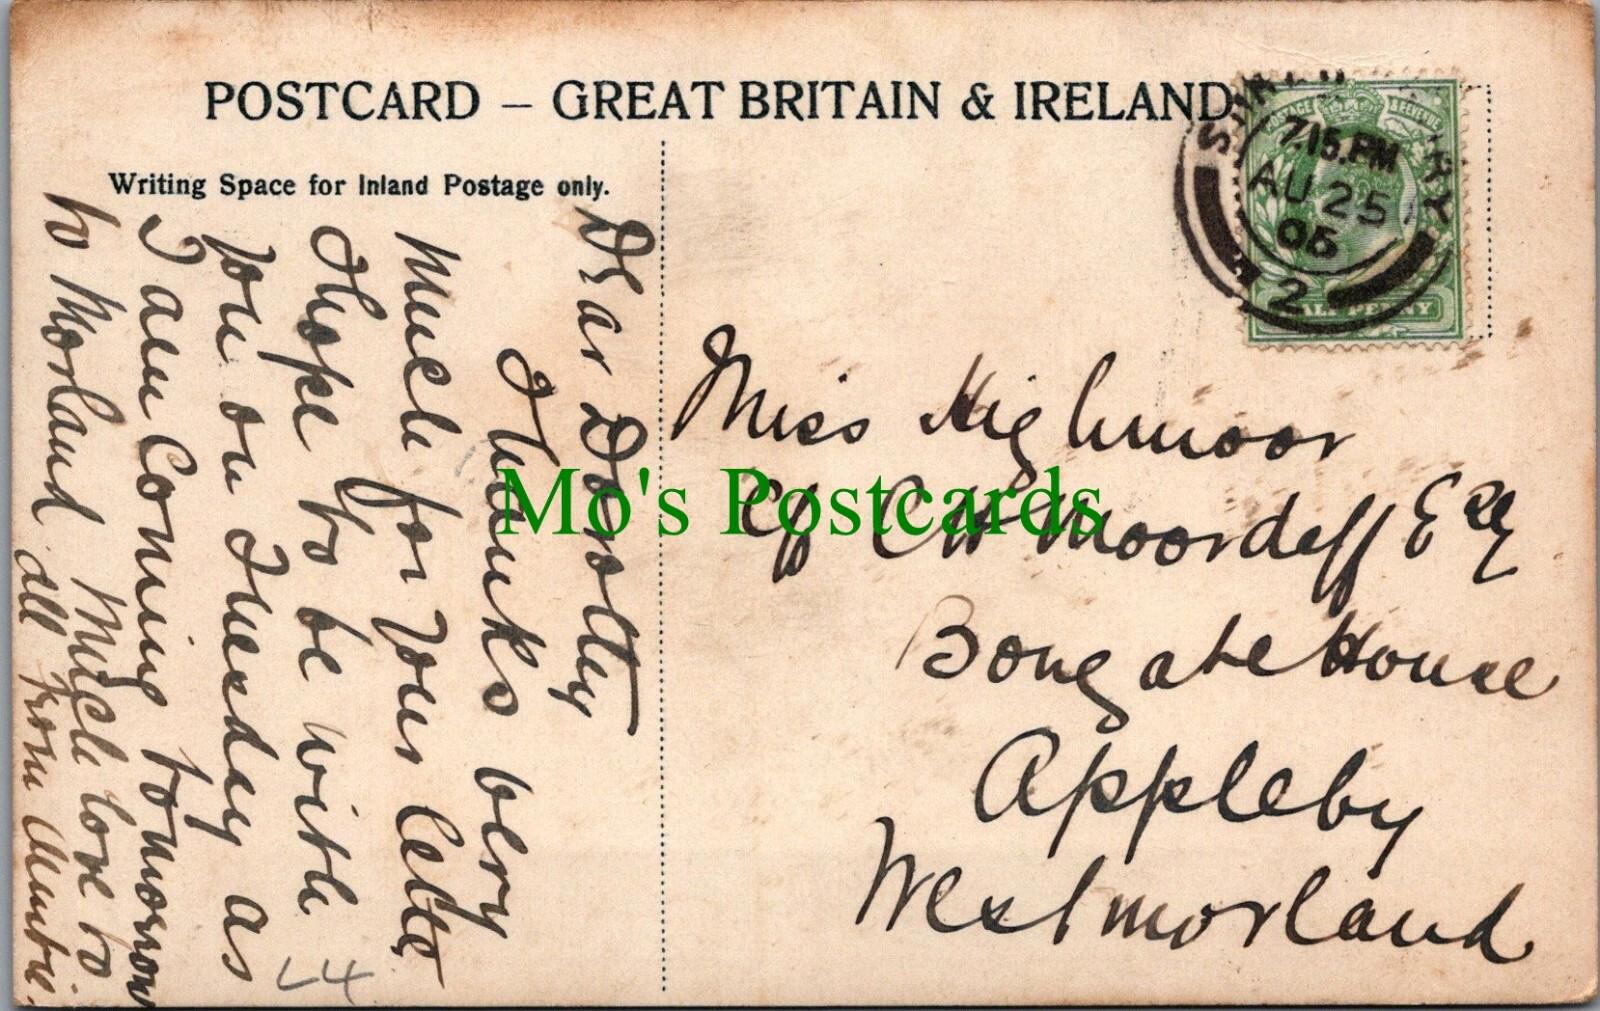 POSTCARD – GREAT BRITAIN & IRELAND
Writing Space for Inland Postage only.
Dear Dorothy
Thanks very
much for your letter
I hope to be with
you on Tuesday as
I am coming tomorrow
to Morland Much love to
all from
L4
7.15.PM
AU 25
06
2
POSTAGE & REVENUE
HALF PENNY
Miss Highmoor
C/o
Esq
Bongate House
Appleby
Westmorland
Mo's Postcards